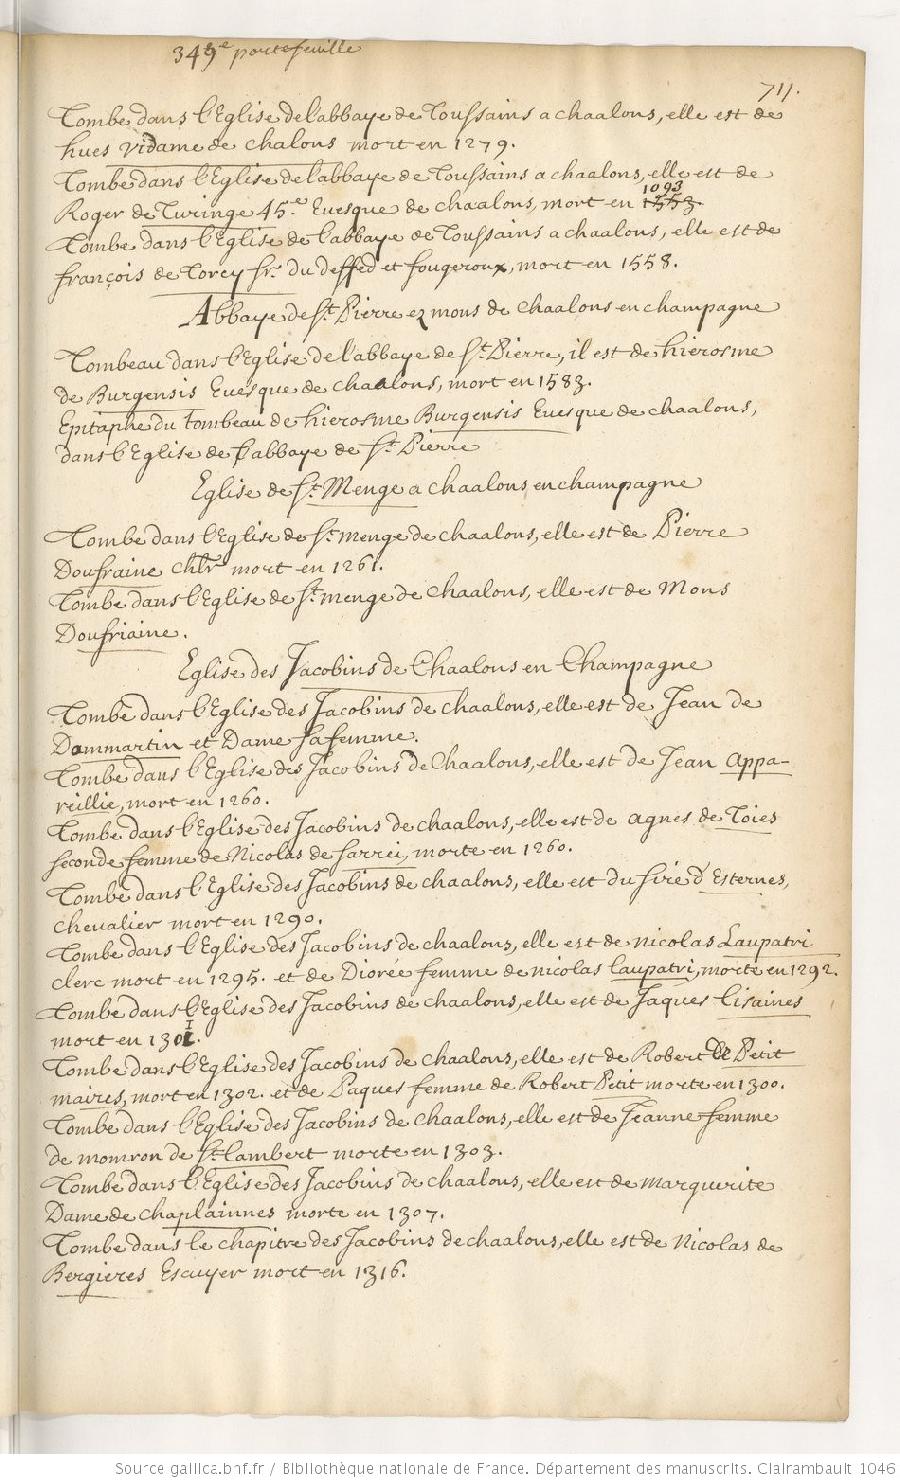 349e portefeuille
711.
Tombe dans l'Eglise de l'abbaye de Toussains a chaalons, elle est de
hues vidame de chalons mort en 1279.
Tombe dans l'Eglise de l'abbaye de Toussains a chaalons, elle est de
1093
Roger de Turinge 45.e Euesque de chaalons, mort en 1553.
Tombe dans l'Eglise de l'abbaye de Toussains a chaalons, elle est de
françois de Torcy sr. du deffed et fougeroux, mort en 1558.
Abbaye de St. Pierre ez mons de Chaalons en champagne
Tombeau dans l'Eglise de l'abbaye de St. Pierre, il est de hierosme
de Burgensis Euesque de chaalons, mort en 1583.
Epitaphe du tombeau de hierosme Burgensis Euesque de chaalons,
dans l'Eglise de l'abbaye de St. Pierre
Eglise de St. Menge a chaalons en champagne
Tombe dans l'Eglise de St. menge de chaalons, elle est de Pierre
Doufraine chlr mort en 1261.
Tombe dans l'Eglise de St. menge de chaalons, elle est de Mons
Doufriaine.
Eglise des Jacobins de Chaalons en Champagne
Tombe dans l'Eglise des Jacobins de chaalons, elle est de Jean de
Dommartin et Dame sa femme.
Tombe dans l'Eglise des Jacobins de Chaalons, elle est de Jean Appa-
reillie, mort en 1260.
Tombe dans l'Eglise des Jacobins de chaalons, elle est de agnes de Toies
seconde femme de Nicolas de sarrei, morte en 1260.
Tombe dans l'Eglise des Jacobins de chaalons, elle est du sire d'Esternes,
chevalier mort en 1290.
Tombe dans l'Eglise des Jacobins de chaalons, elle est de nicolas Laupatri
clerc mort en 1295. et de Diorée femme de nicolas laupatri, morte en 1292.
Tombe dans l'Eglise des Jacobins de chaalons, elle est de Jaques lisaines
mort en 1301.
Tombe dans l'Eglise des Jacobins de chaalons, elle est de Robert le Petit
maires, mort en 1302. et de Paques femme de Robert Petit morte en 1300.
Tombe dans l'Eglise des Jacobins de chaalons, elle est de Jeanne femme
de momron de St. lambert morte en 1303.
Tombe dans l'Eglise des Jacobins de chaalons, elle est de marguerite
Dame de chaplainnes morte en 1307.
Tombe dans le chapitre des Jacobins de chaalons, elle est de Nicolas de
Bergieres Escuyer mort en 1316.
Source gallica.bnf.fr / Bibliothèque nationale de France. Département des manuscrits. Clairambault 1046